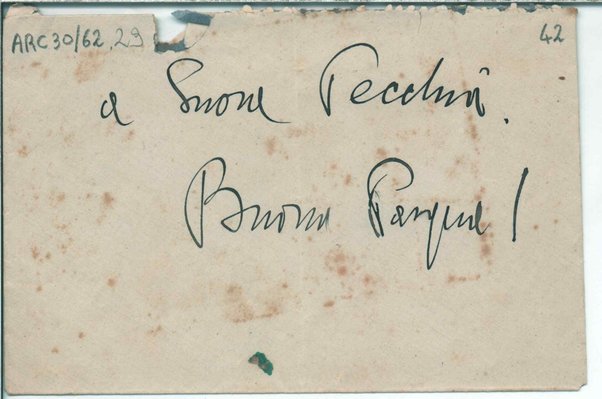 ARC 30/62 29
42
a Suor Pecchiai.
Buona Pasqua!